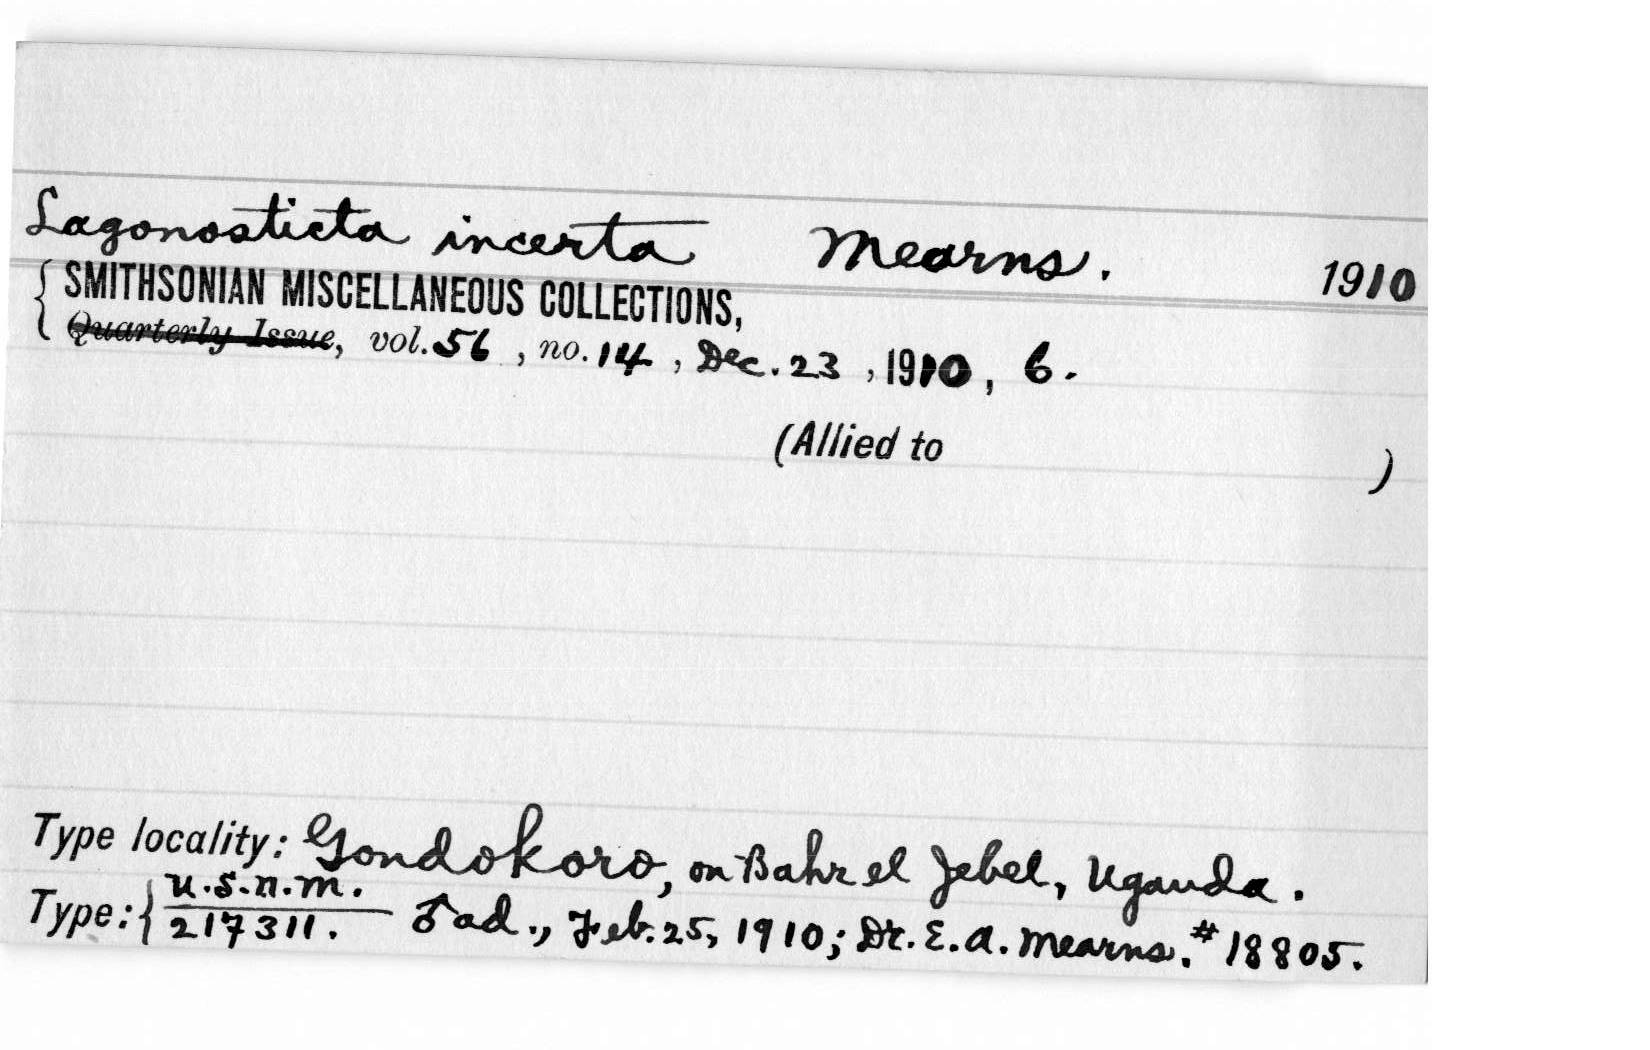 Lagonosticta incerta Mearns. 1910
{ SMITHSONIAN MISCELLANEOUS COLLECTIONS,
Quarterly Issue, vol. 56, no. 14, Dec. 23, 1910, 6.
(Allied to )
Type locality: Gondokoro, on Bahr el Jebel, Uganda.
Type: { U.S.N.M.
217311. ♂ ad., Feb. 25, 1910; Dr. E. A. Mearns. # 18805.